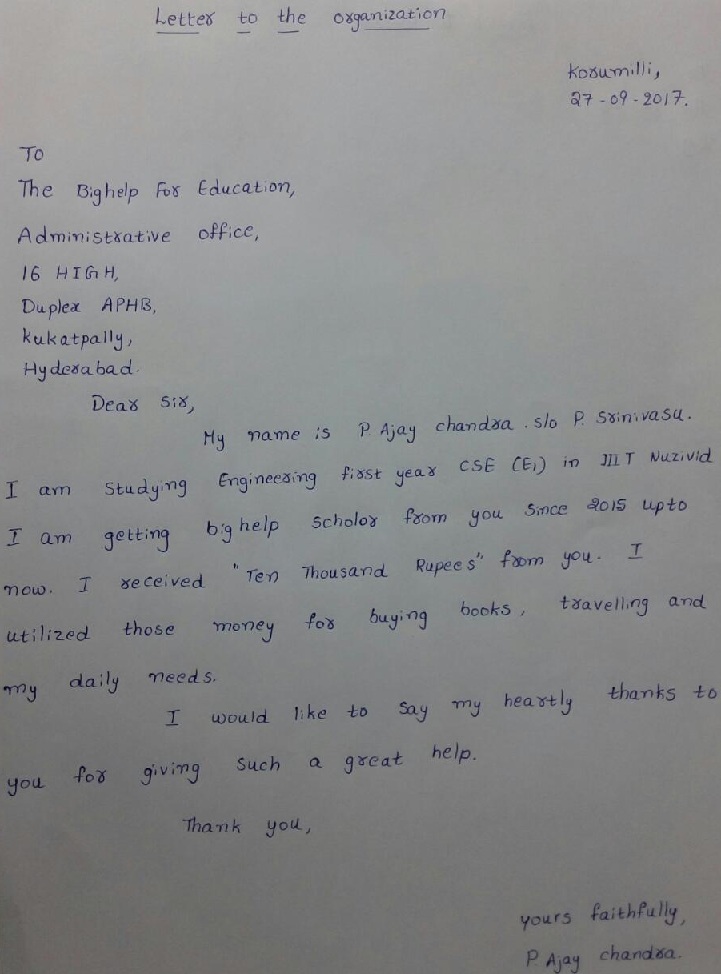 Letter to the organization
Korumilli,
27-09-2017.
To
The Bighelp For Education,
Administrative office,
16 HIGH,
Duplex APHB,
Kukatpally,
Hyderabad.
Dear Sir,
My name is P. Ajay chandra. s/o P. Srinivasu.
I am Studying Engineering first year CSE (E1) in IIIT Nuzivid
I am getting big help Scholor from you Since 2015 upto
now. I received "Ten Thousand Rupees" from you. I
utilized those money for buying books, travelling and
my daily needs.
I would like to say my heartly thanks to
you for giving such a great help.
Thank you,
yours faithfully,
P. Ajay chandra.